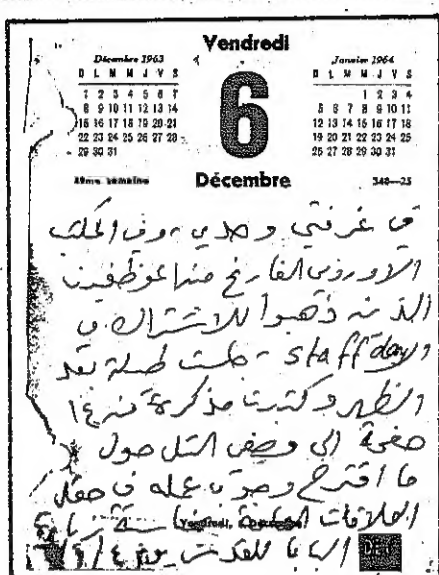 Vendredi
Décembre 1963
D L M M J V S
1 2 3 4 5 6 7
8 9 10 11 12 13 14
15 16 17 18 19 20 21
22 23 24 25 26 27 28
29 30 31
6
Janvier 1964
D L M M J V S
1 2 3 4
5 6 7 8 9 10 11
12 13 14 15 16 17 18
19 20 21 22 23 24 25
26 27 28 29 30 31
49me semaine
Décembre
340—25
في غرفتي وحدي، وفي المكتب
الاوروبي الفارغ من الموظفين
الذين ذهبوا للاشتراك في
staff day - جلست طيلة بعد
الظهر وكتبت مذكرة من ١٤
صفحة الى وصفي التل حول
ما اقترح وجوب عمله في حقل
العلاقات العامة
البابا للقدس